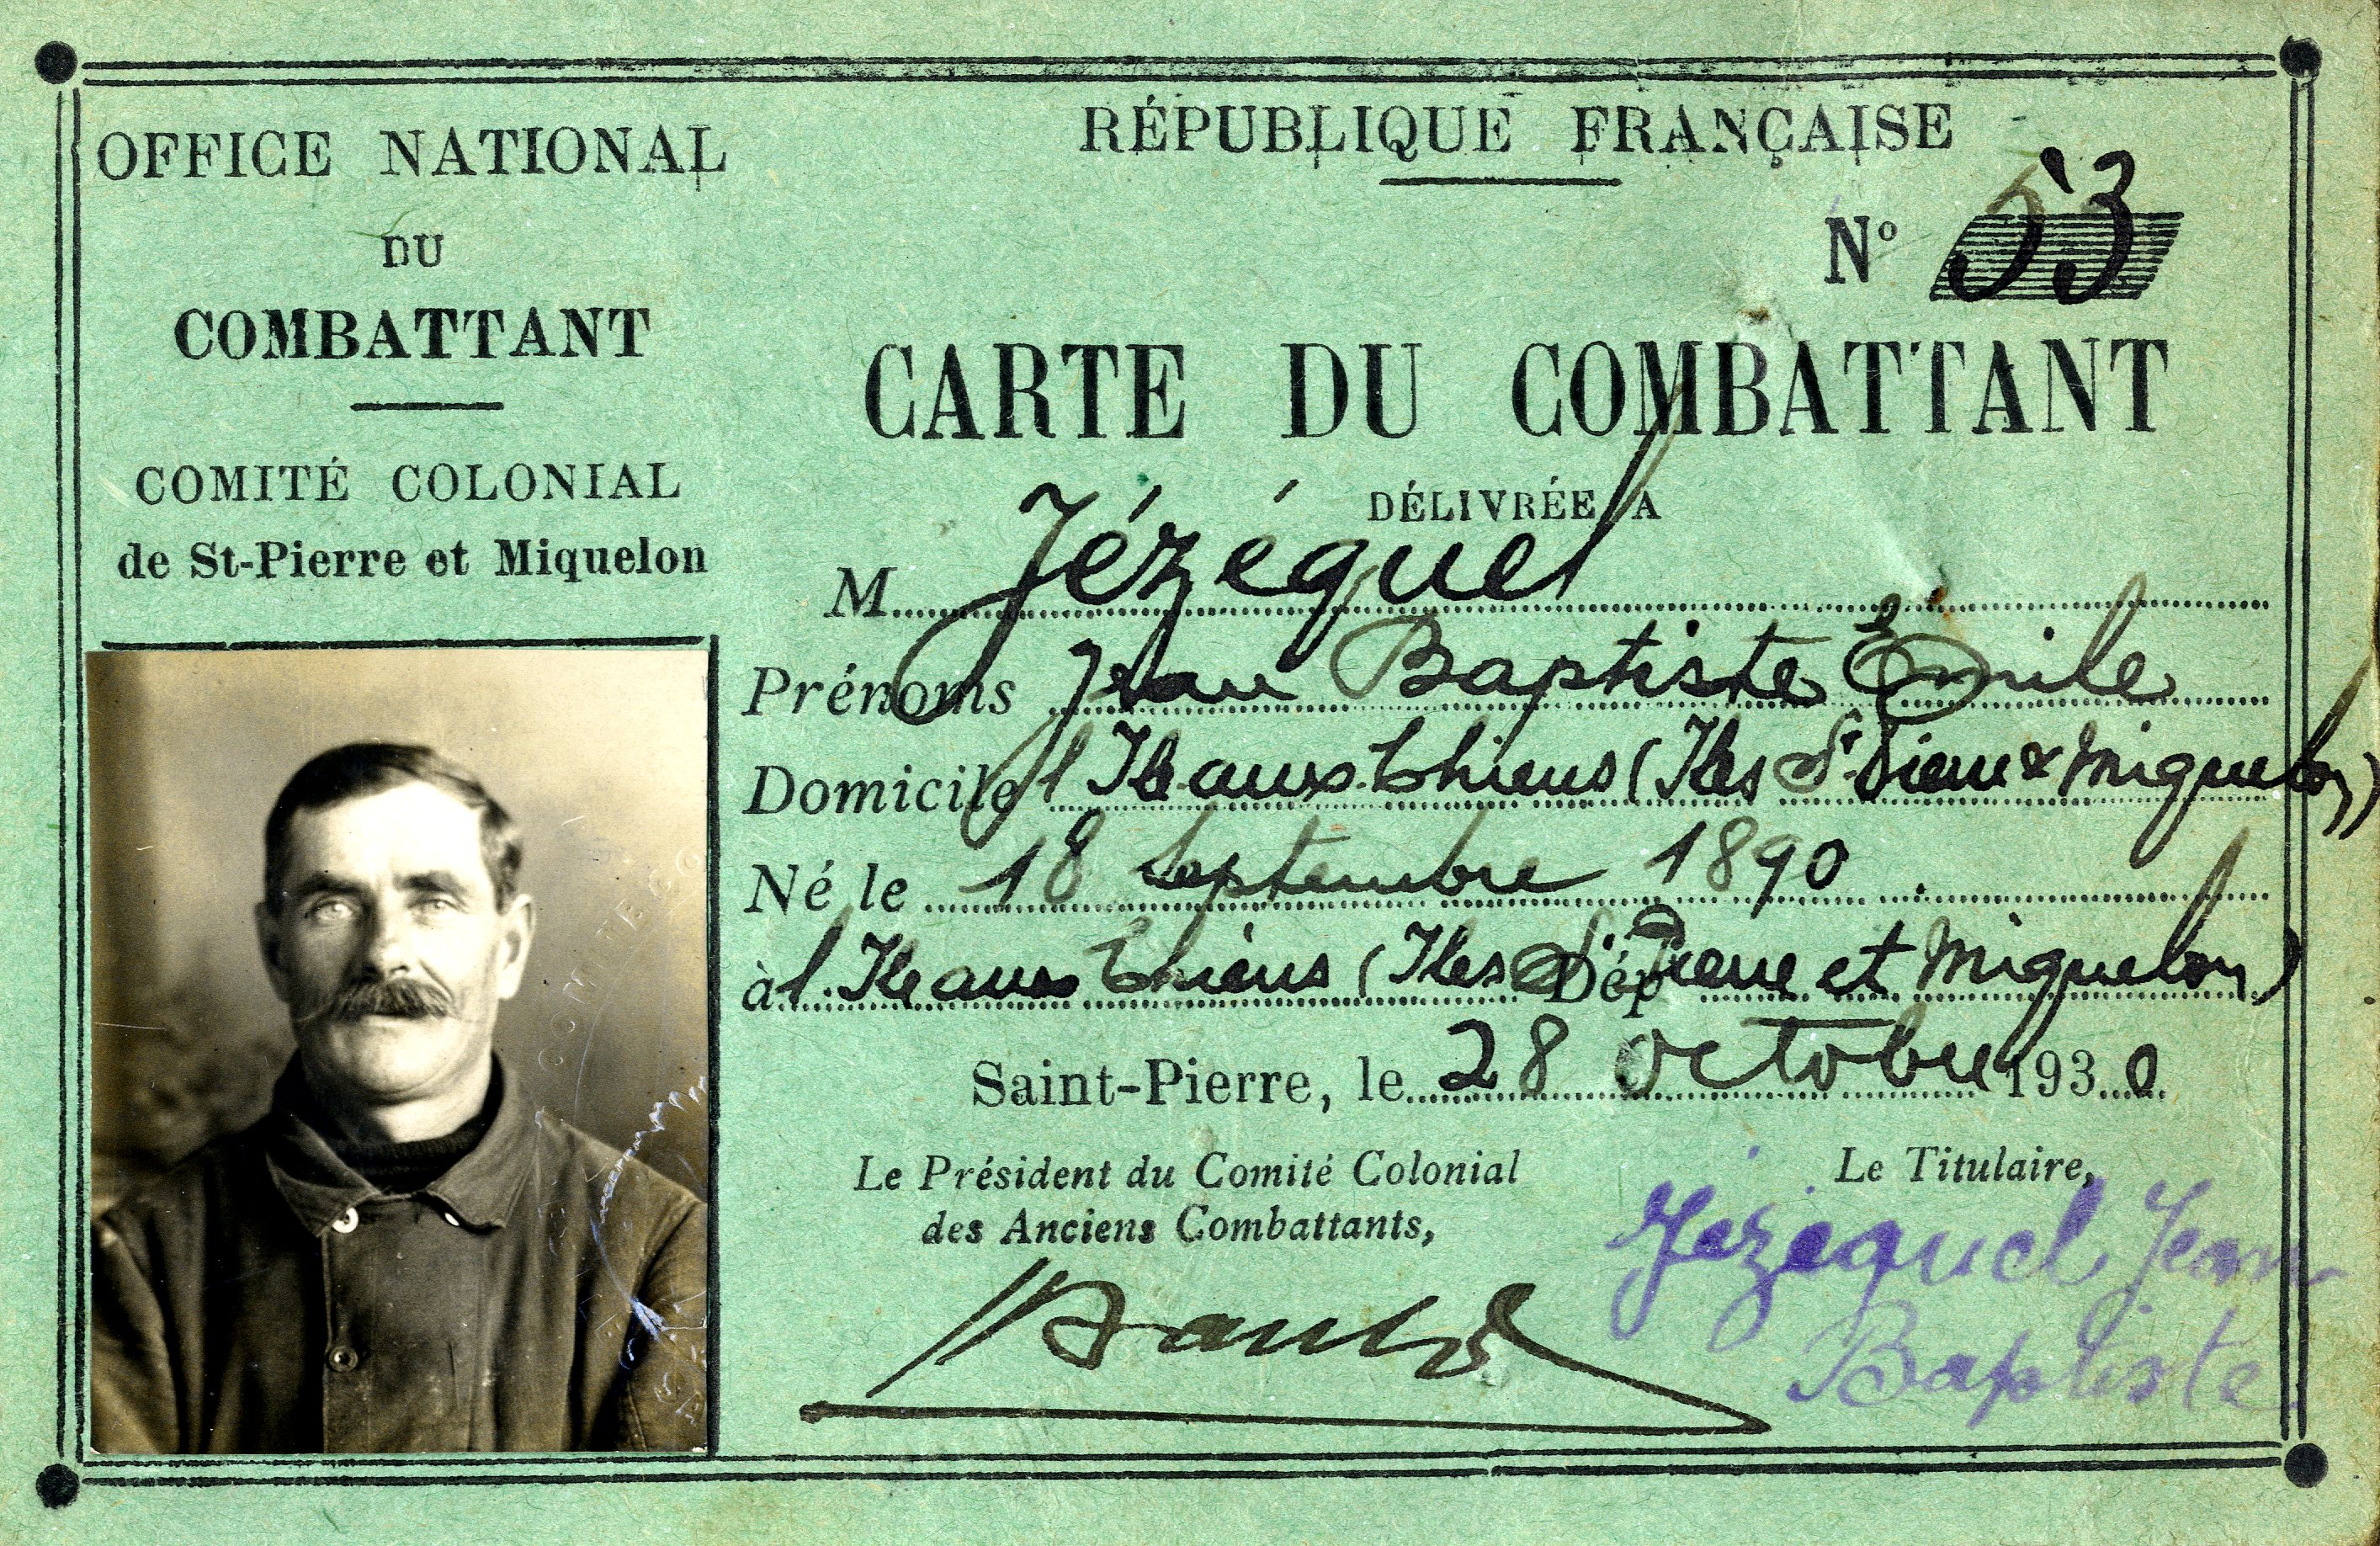 OFFICE NATIONAL
DU
COMBATTANT
COMITÉ COLONIAL
de St-Pierre et Miquelon
RÉPUBLIQUE FRANÇAISE
Nº 53
CARTE DU COMBATTANT
DÉLIVRÉE A
M Jézéquel
Prénoms Jean Baptiste Emile
Domicile l'Ile aux Chiens (Iles St Pierre & Miquelon)
Né le 18 Septembre 1890
à l'Ile aux Chiens (Iles St Pierre et Miquelon) Dép
Saint-Pierre, le 28 Octobre 1930
Le Président du Comité Colonial
des Anciens Combattants,
Le Titulaire,
Jezequel Jean
Baptiste